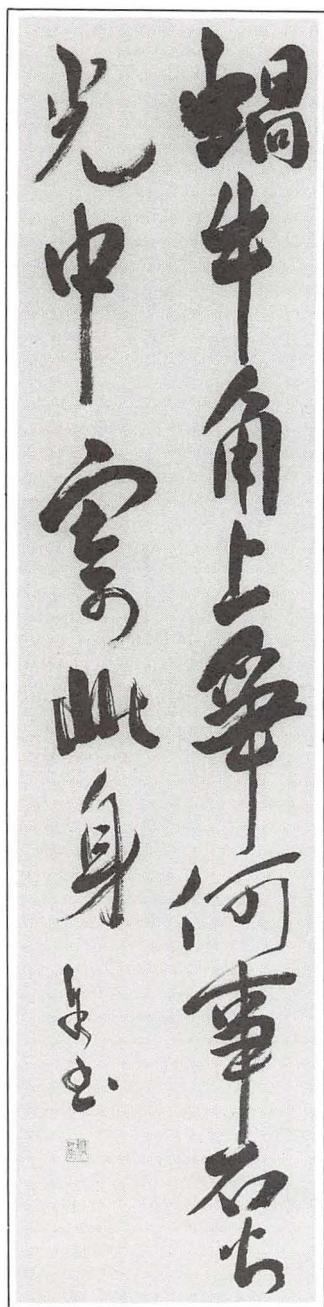 蝸牛角上爭何事石火
光中寄此身